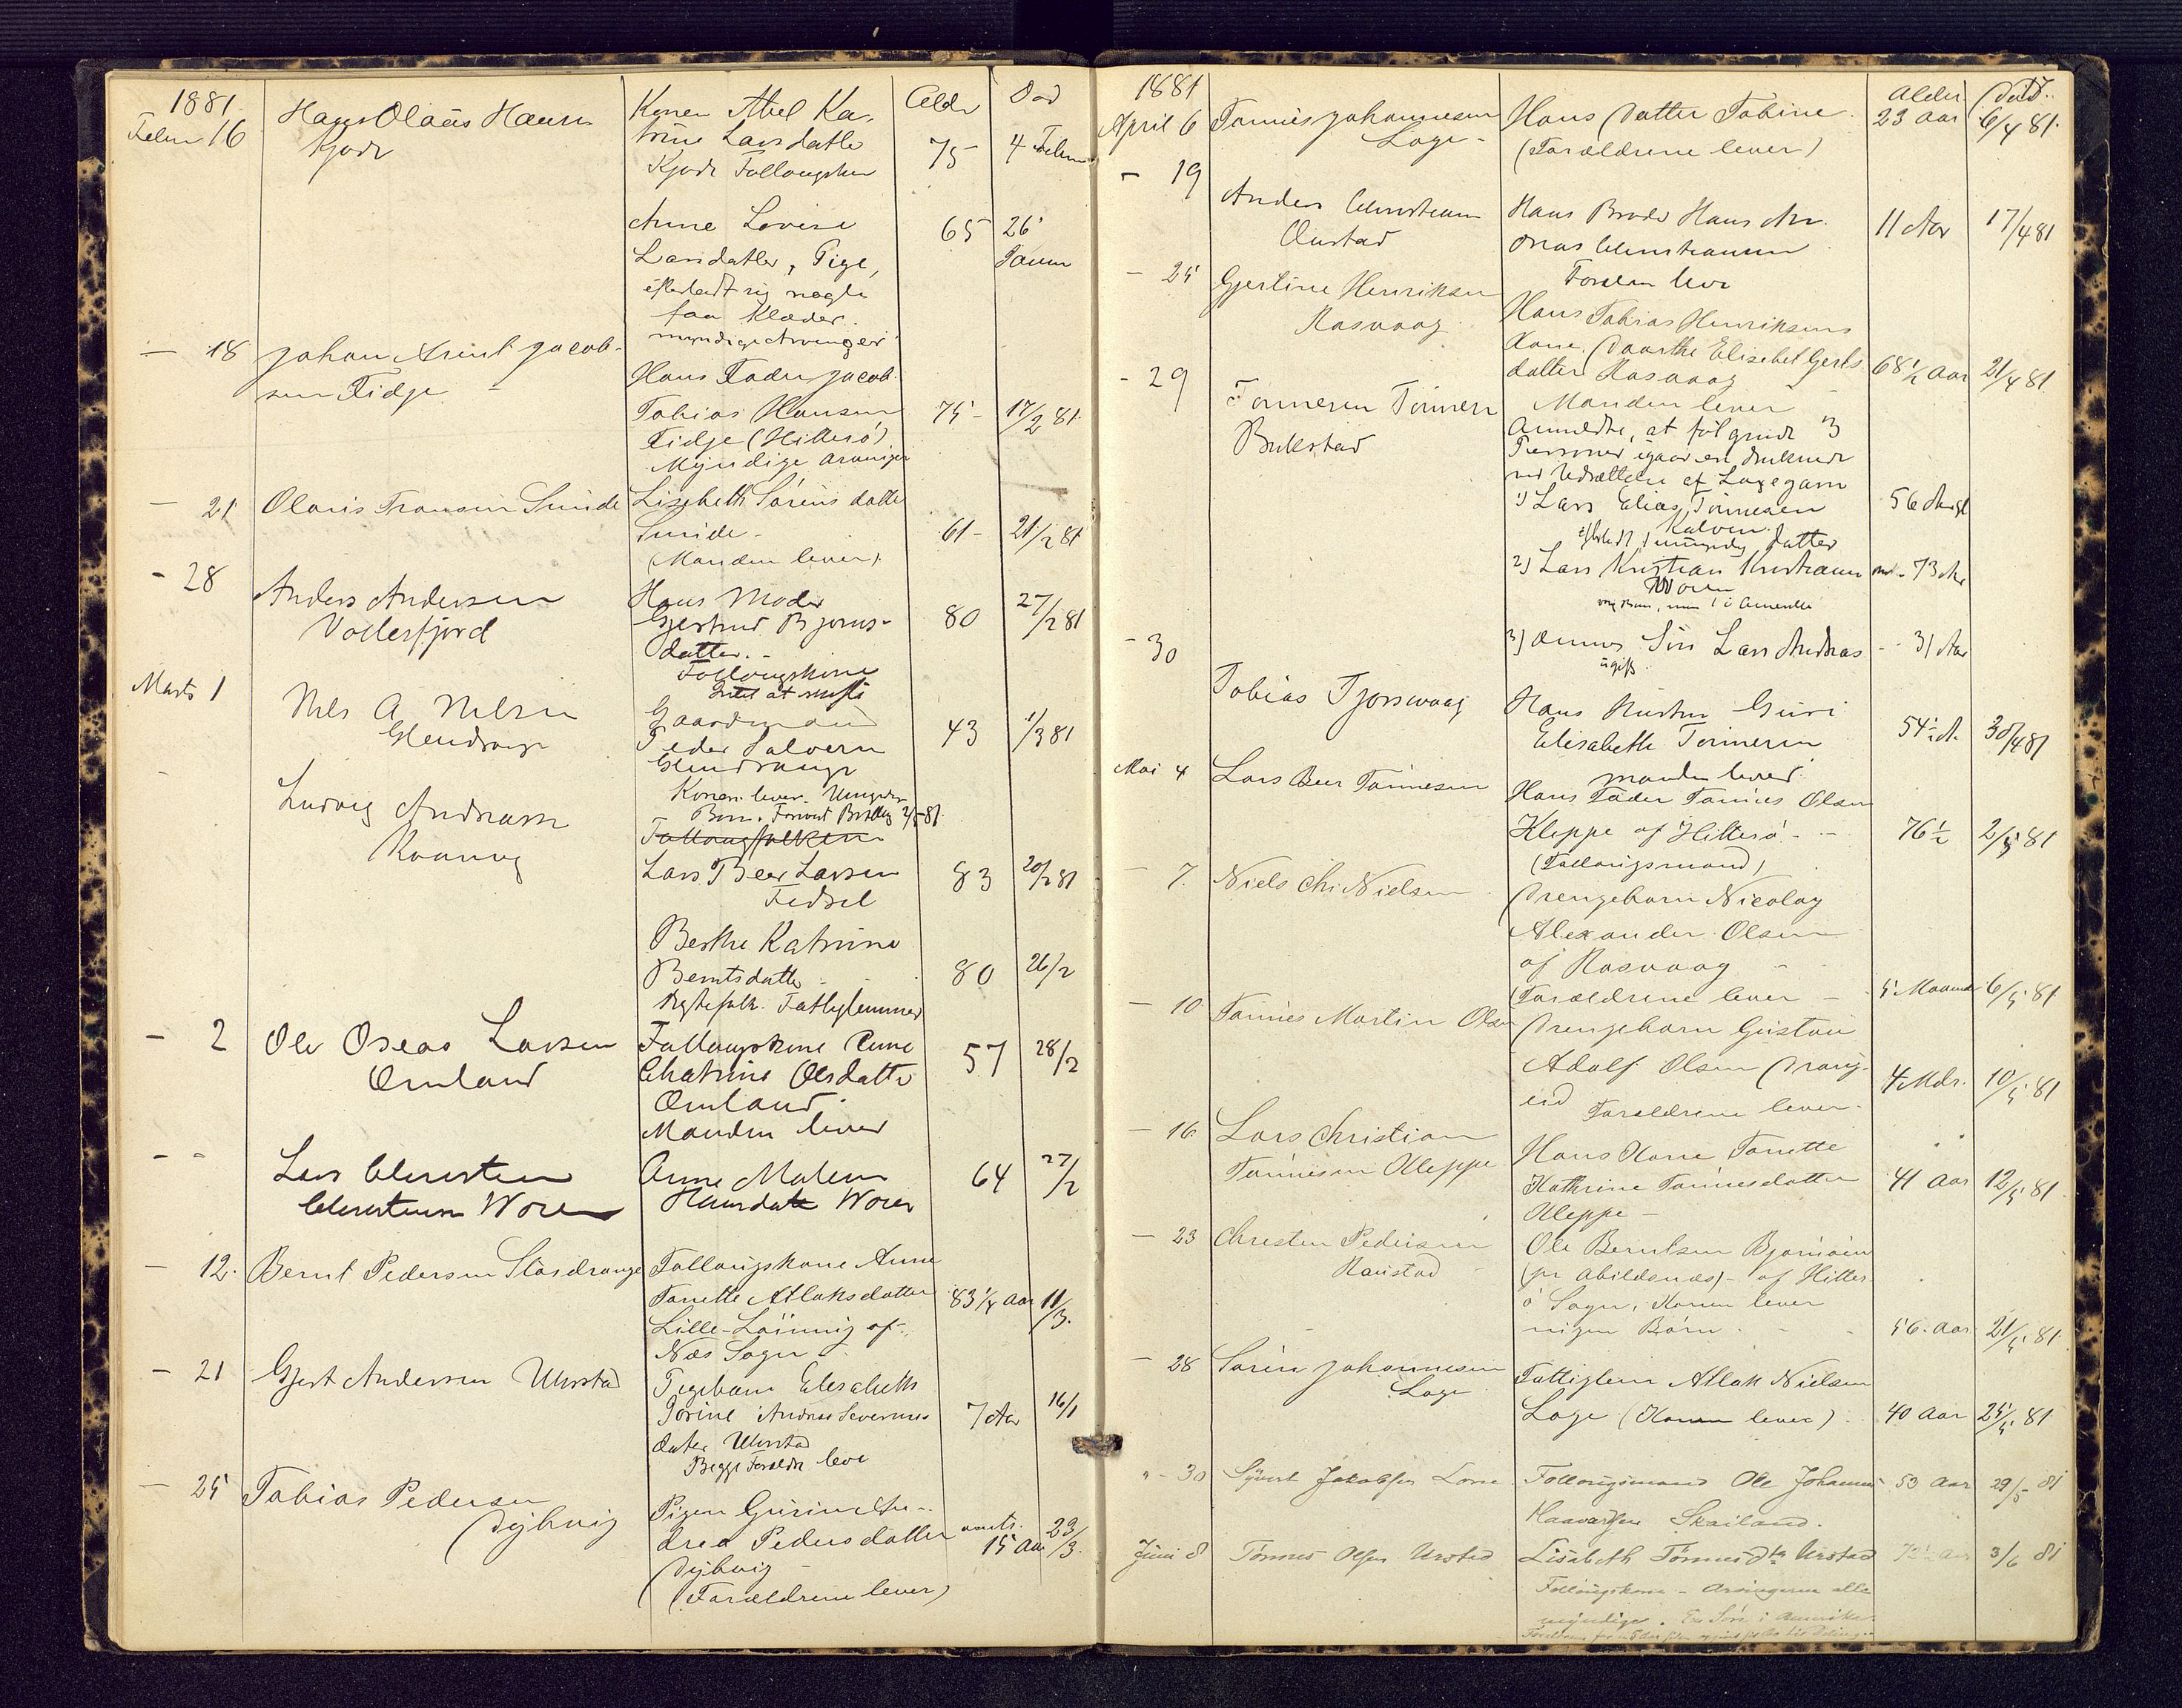 1881
Alder
Død
Febru 16
Hans Olaus Hansen
Kjøde
Konen Abel Ka-
trine Larsdatter
Kjøde Follaugskone
75
4 Febru
Anne Lovise
Larsdatter, Pige,
efterladt sig nogle
faa Klæder.
myndige Arvinger
65
26
Januar
— 18
Johan Arent Jacob-
sen Fidje
Hans Fader Jacob
Tobias Hansen
Fidje (Hitterø)
Myndige Arvinger
75 -
17/2 81.
— 21
Olavis Tronsen Sunde
Lisebeth Sørens datter
Sunde -
(Manden lever)
61 -
21/2 81
- 28
Anders Andersen
Vollesfjord
Hans Moder
Gjertrud Bjørns-
datter. -
Follaugskone
Intet at skifte
80
27/2 81
Marts 1
Nils A. Nilsen
Glendrange
Gaardmand
Peder Salvesen
Glendrange
Konen lever. Umyndige
Børn.
43
1/3 81
Ludvig Andreassen
Follaugsfolkene
Lars Beer Larsen
Fedsel
83
20/2 81
Berthe Katrine
Berntsdatter
Fattiglemmer
80
26/2
- 2
Ole Oseas Larsen
Omland
Follaugskone Anne
Chatrine Olsdatter
Omland.
Manden lever
57
28/2
- -
Lars Christen
Christensen Woren
Anne Malene
Hansdatr Woren
64
27/2
— 12.
Bernt Pedersen Stordrange
Follougskone Anne
Tonette Atlaksdatter
Lille-Lønning af
Næs Sogn
83 1/4 Aar
11/3.
— 21
Gjert Andersen Urstad
Pigebarn Elisabeth
Torine Andreas Severines
datter Urstad
Begge Foreldre leve
7 Aar
16/1
— 25
Tobias Pedersen
Dybvig
Pigen Gurine An-
drea Pedersdatter
Dybvig -
(Foreldrene lever)
omtr.
15 Aar
23/3.
1881
Alder
Død.
17.
April 6
Tønnes Johannesen
Loge -
Hans Datter Tobine.
(Foreldrene lever)
23 Aar
6/4 81.
- 19
Anders Christensen
Onstad
Hans Broder Hans An-
dreas Christensen
Foreldre leve
11 Aar
17/4 81
- 25
Gjertine Henriksen
Rasvaag
Hans Tobias Henriksens
Kone Dorthe Elisebet Gerts
datter Rasvaag
Manden lever
68 1/2 Aar
21/4 81.
- 29
Tønnesen Tønnesen
Bukstad
Anmeldte, at følgende 3
Personer igaar ere druknede
ved Udsættelse af Laxegarn
1) Lars Elias Tønnesen
Kalven.
efterladt 1 umyndig Datter
56 Aar gl
2) Lars Kristian Kristiansen
Woren
73 Aar
3) dennes Søn Lars Andreas
ugift.
- 31 Aar
- 30
Tobias Tjorsvaag
Hans Hustru Guri
Elisabeth Tønnesen
manden lever.
54 1/2 A.
30/4 81
Mai 4
Lars Beer Tønnesen
Hans Fader Tønnes Olsen
Kleppe af Hitterø - -
(Follougsmand)
76 1/2
2/5 81
— 7.
Niels Chr Nielsen
Drengebarn Nicolay
Alexander Olsen
af Rasvaag -
(Foreldrene lever -
5 Maaned
6/5 81
— 10
Tønnes Martin Olsen
Drengebarn Gustav
Adolf Olsen Drang-
eid
Foreldrene lever.
4 Mdr.
10/5 81
— 16
Lars Christian
Tønnesen Kleppe
Hans Kone Tonette
Kathrine Tønnesdatter
Kleppe -
41 Aar
12/5 81.
— 23
Christen Pedersen
Ranstad
Ole Berntsen Bjørnøen
(pr Abildsnæs) - af Hitter
ø Sogn, Konen lever
ingen Børn.
56. Aar
21/5 81.
— 28
Søren Johannesen
Loge
Fattiglem Atlak Nielsen
Loge (Konen lever)
40 Aar
25/5 81
" - 30
Syvert Jakobsen Lone
Follougsmand Ole Johannes
Haavardsen Skailand.
53 Aar
29/5 81
Juni 8
Tønnes Olsen Urstad
Lisabeth Tønnesdtr Urstad
Follougskone - Arvingerne alle
myndige. En Søn i Amerika.
72 1/2 Aar
3/6 81